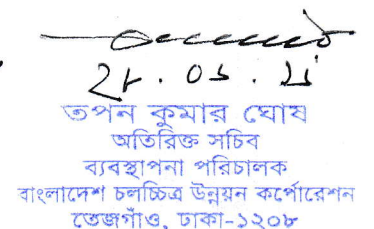 তপন কুমার ঘোষ
অতিরিক্ত সচিব
ব্যবস্থাপনা পরিচালক
বাংলাদেশ চলচ্চিত্র উন্নয়ন কর্পোরেশন
তেজগাঁও, ঢাকা-১২০৮